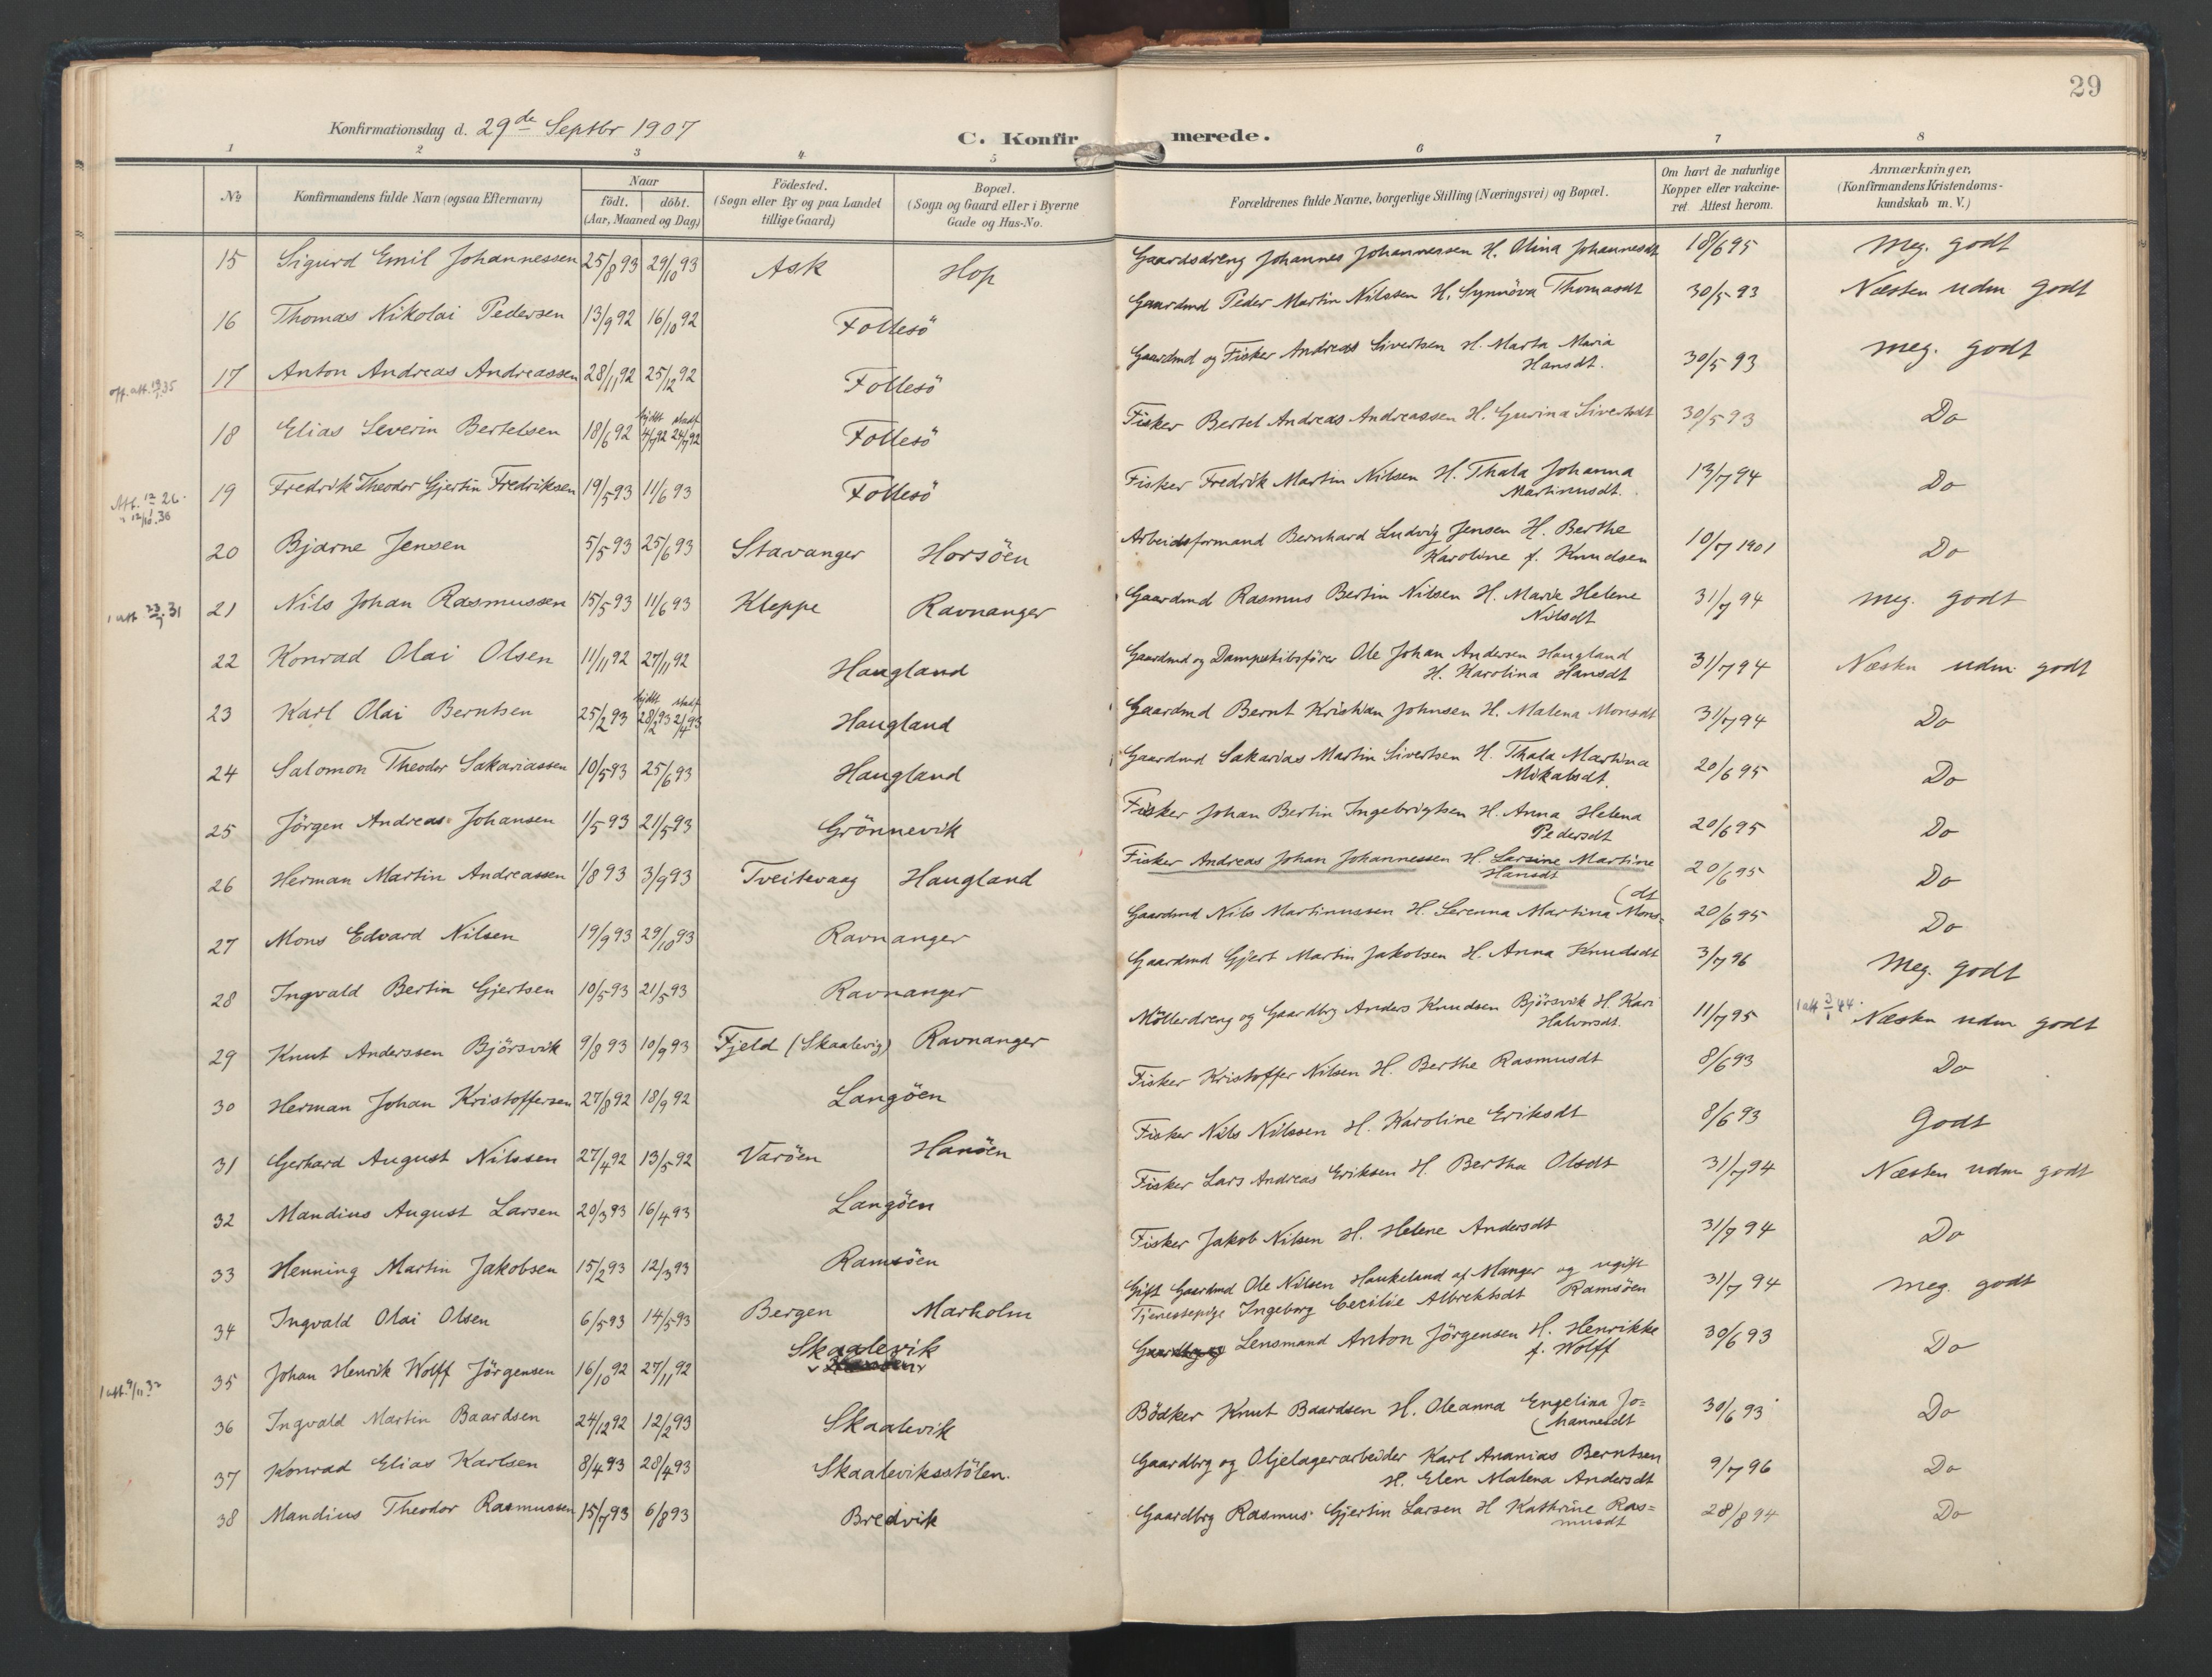 29
Konfirmationsdag d. 29de Septbr 1907
C. Konfirmerede.
1 2 3 4 5 6 7 8
№ Konfirmandens fulde Navn (ogsaa Efternavn) Naar födt. döbt. (Aar, Maaned og Dag) Födested. (Sogn eller By og paa Landet tillige Gaard) Bopæl. (Sogn og Gaard eller i Byerne Gade og Hus-No. Forældrenes fulde Navne, borgerlige Stilling (Næringsvei) og Bopæl. Om havt de naturlige Kopper eller vakcineret. Attest herom. Anmærkninger, (Konfirmandens Kristendomskundskab m. V.)
15 Sigurd Emil Johannessen 25/8 93 29/10 93 Ask Hop Gaardsdreng Johannes Johannessen H. Olina Johannesdt 18/6 95 Meg. godt
16 Thomas Nikolai Pedersen 13/9 92 16/10 92 Follesö Gaardmd Peder Martin Nilssen H. Synnöva Thomasdt 30/5 93 Næsten udm godt
17 Anton Andreas Andreassen 28/11 92 25/12 92 Follesö Gaardmd og Fisker Andreas Sivertsen H. Marta Maria Hansdt. 30/5 93 meg. godt
18 Elias Severin Bertelsen 18/6 92 hjdt 4/7 92 stadf 24/7 92 Follesö Fisker Bertel Andreas Andreassen H. Gurina Sivertsdt 30/5 93 Do
19 Fredrik Theodor Gjertin Fredriksen 19/5 93 11/6 93 Follesö Fisker Fredrik Martin Nilsen H. Thala Johanna Martinusdt. 13/7 94 Do
20 Bjarne Jensen 5/5 93 25/6 93 Stavanger Horsöen Arbeidsformand Bernhard Ludvig Jensen H. Berthe Karoline f. Knudsen 10/7 1901 Do
1 att 23/1 31 21 Nils Johan Rasmussen 15/5 93 11/6 93 Kleppe Ravnanger Gaardmd Rasmus Bertin Nilsen H. Marie Helene Nilsdt 31/7 94 meg. godt
22 Konrad Olai Olsen 11/11 92 27/11 92 Haugland Gaardmd og Dampskibsförer Ole Johan Andersen Haugland H. Karolina Hansdt 31/7 94 Næsten udm godt
23 Karl Olai Berntsen 25/2 93 hjdt. 28/2 93 stadf 2/4 93 Haugland Gaardmd Bernt Kristian Johnsen H. Malena Monsdt 31/7 94 Do
24 Salomon Theodor Sakariassen 10/5 93 25/6 93 Haugland Gaardmd Sakarias Martin Sivertsen H. Thala Martina Mikalsdt. 20/6 95 Do
25 Jörgen Andreas Johansen 1/5 93 21/5 93 Grönnevik Fisker Johan Bertin Ingebrigtsen H. Anna Helena Pedersdt 20/6 95 Do
26 Herman Martin Andreassen 1/8 93 3/9 93 Tveitevaag Haugland Fisker Andreas Johan Johannessen H. Larsine Martine Hansdt 20/6 95 Do
27 Mons Edvard Nilsen 19/9 93 29/10 93 Ravnanger Gaardmd Nils Martinussen H. Serenna Martina Mons=(dt 20/6 95 Do
28 Ingvald Bertin Gjertsen 10/5 93 21/5 93 Ravnanger Gaardmd Gjert Martin Jakobsen H. Anna Knudsdt 3/7 96 Meg. godt
29 Knut Anderssen Björsvik 9/8 93 10/9 93 Fjeld (Skaalevig) Ravnanger Möllerdreng og Gaardbrg Anders Knudsen Björsvik H. Kari Halvorsdt. 11/7 95 1 att 3/1 44. Næsten udm godt
30 Herman Johan Kristoffersen 27/8 92 18/9 92 Langöen Fisker Kristoffer Nilsen H. Berthe Rasmusdt 8/6 93 Do
31 Gerhard August Nilssen 27/4 92 13/5 92 Varöen Hanöen Fisker Nils Nilssen H. Karoline Eriksdt 8/6 93 Godt
32 Mandius August Larsen 20/3 93 16/4 93 Langöen Fisker Lars Andreas Eriksen H. Bertha Olsdt 31/7 94 Næsten udm godt
33 Henning Martin Jakobsen 15/2 93 12/3 93 Ramsöen Fisker Jakob Nilsen H. Helene Andersdt 31/7 94 Do
34 Ingvald Olai Olsen 6/5 93 14/5 93 Bergen Marholm Gift Gaardmd Ole Nilsen Haukeland af Manger og ugift Tjenestepige Ingeborg Cecilie Albrektsdt Ramsöen 31/7 94 meg. godt
1 att. 9/11 32 35 Johan Henrik Wolff Jörgensen 16/10 92 27/11 92 Skaalevik Gaardbrg og Lensmand Anton Jörgensen H. Henrikke f. Wolff 30/6 93 Do
36 Ingvald Martin Baardsen 24/12 92 12/2 93 Skaalevik Bödker Knut Baardsen H. Oleanna Engelina Jo=(hannesdt 30/6 93 Do
37 Konrad Elias Karlsen 8/4 93 28/4 93 Skaaleviksstölen. Gaardbrg og Oljelagerarbeider Karl Ananias Berntsen H. Elen Malena Andersdt 9/7 96 Do
38 Mandius Theodor Rasmussen 15/7 93 6/8 93 Bredvik Gaardbrg Rasmus Gjertin Larsen H Kathrine Ras=musdt 28/8 94 Do